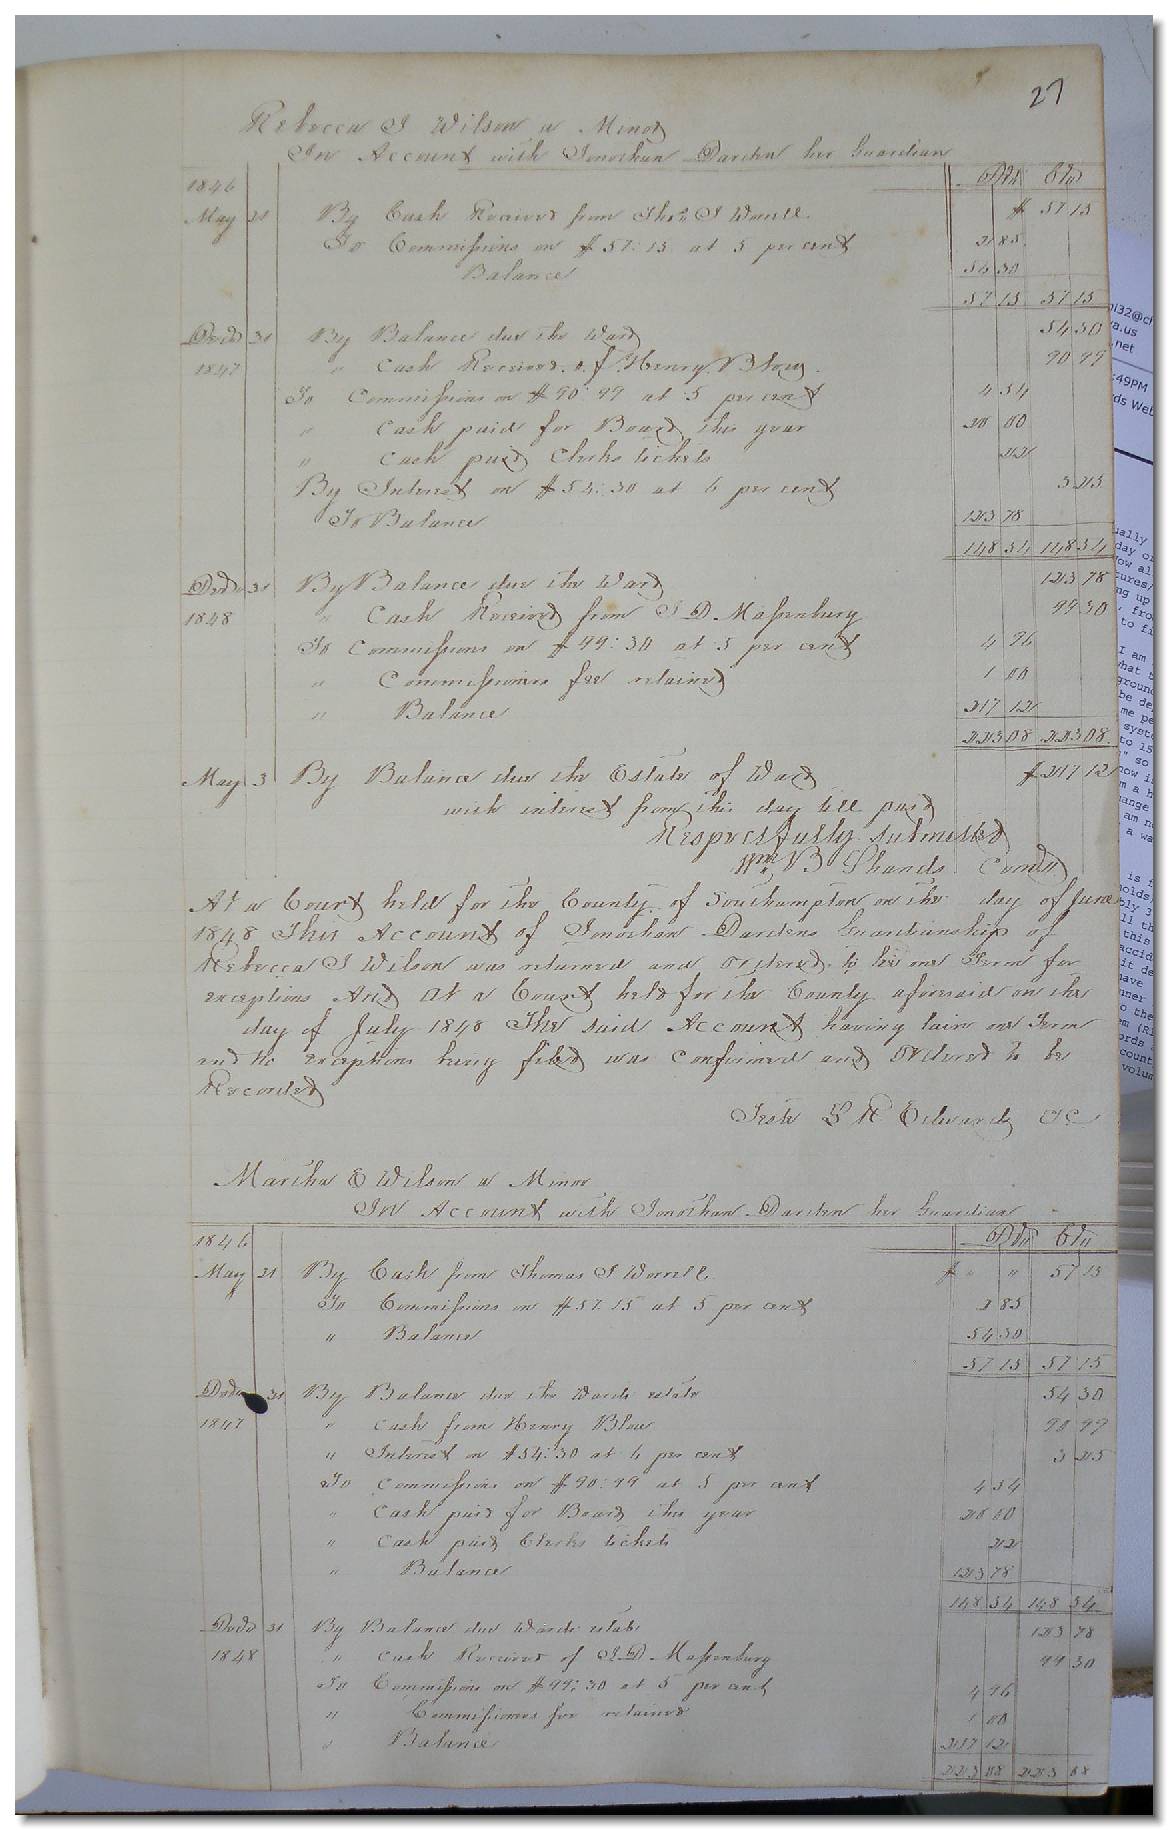 27
Rebecca J Wilson a Minor
In Account with Jonathan Darden her Guardian
1846 Drs Crs
May 31 By Cash Received from Thos J Worrell $ 57 15
To Commissions on $57:15 at 5 per cent 2 85
Balance 54 30
57 15 57 15
Decr 31 By Balance due the Ward 54 30
1847 " Cash Received of Henry Blow 90 99
To Commissions on $90:99 at 5 per cent 4 54
" Cash paid for Board this year 20 00
" Cash paid Clerks tickets 22
By Interest on $54:30 at 6 per cent 3 25
To Balance 123 78
148 54 148 54
Decr 31 By Balance due the Ward 123 78
1848 " Cash Received from J D Massenburg 99 30
To Commissions on $99:30 at 5 per cent 4 96
" Commissioners fee retained 1 00
" Balance 217 12
223 08 223 08
May 3 By Balance due the Estate of Ward $217 12
with interest from this day till paid
Respectfully submitted
Wm B Shands Comr
At a Court held for the County of Southampton on the day of June
1848 This Account of Jonathan Dardens Guardianship of
Rebecca J Wilson was returned and Ordered to lie one Term for
exceptions And At a Court held for the County aforesaid on the
day of July 1848 The said Account having lain one Term
and no exceptions being filed was Confirmed and Ordered to be
Recorded
Teste L R Edwards CC
Martha E Wilson a Minor
In Account with Jonathan Darden her Guardian
1846 Drs Crs
May 31 By Cash from Thomas J Worrell $ " " 57 15
To Commissions on $57.15 at 5 per cent 2 85
" Balance 54 30
57 15 57 15
Decr 31 By Balance due the Wards estate 54 30
1847 " Cash from Henry Blow 90 99
" Interest on $54:30 at 6 per cent 3 25
To Commissions on $90:99 at 5 per cent 4 54
" Cash paid for Board this year 20 00
" Cash paid Clerks tickets 22
" Balance 123 78
148 54 148 54
Decr 31 By Balance due Wards estate 123 78
1848 " Cash Received of J D Massenburg 99 30
To Commissions on $99:30 at 5 per cent 4 96
" Commissioners fee retained 1 00
" Balance 217 12
223 08 223 08